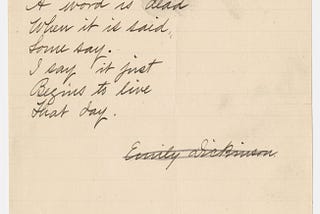 A word is dead
When it is said,
Some say.
I say it just
Begins to live
That day.
Emily Dickinson